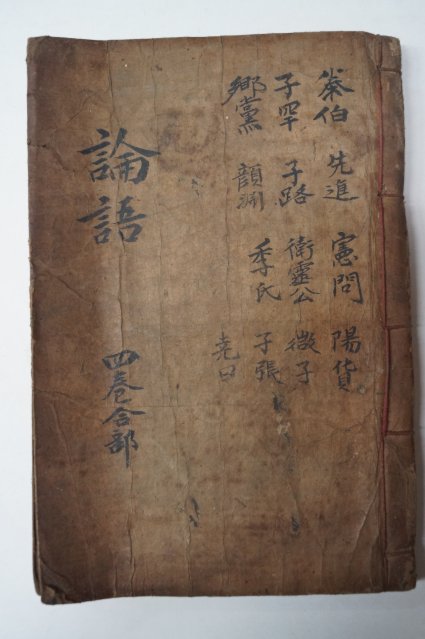 泰伯 先進 憲問 陽貨
子罕 子路 衛靈公 微子
鄉黨 顔淵 季氏 子張
尭曰
論語
四卷合部